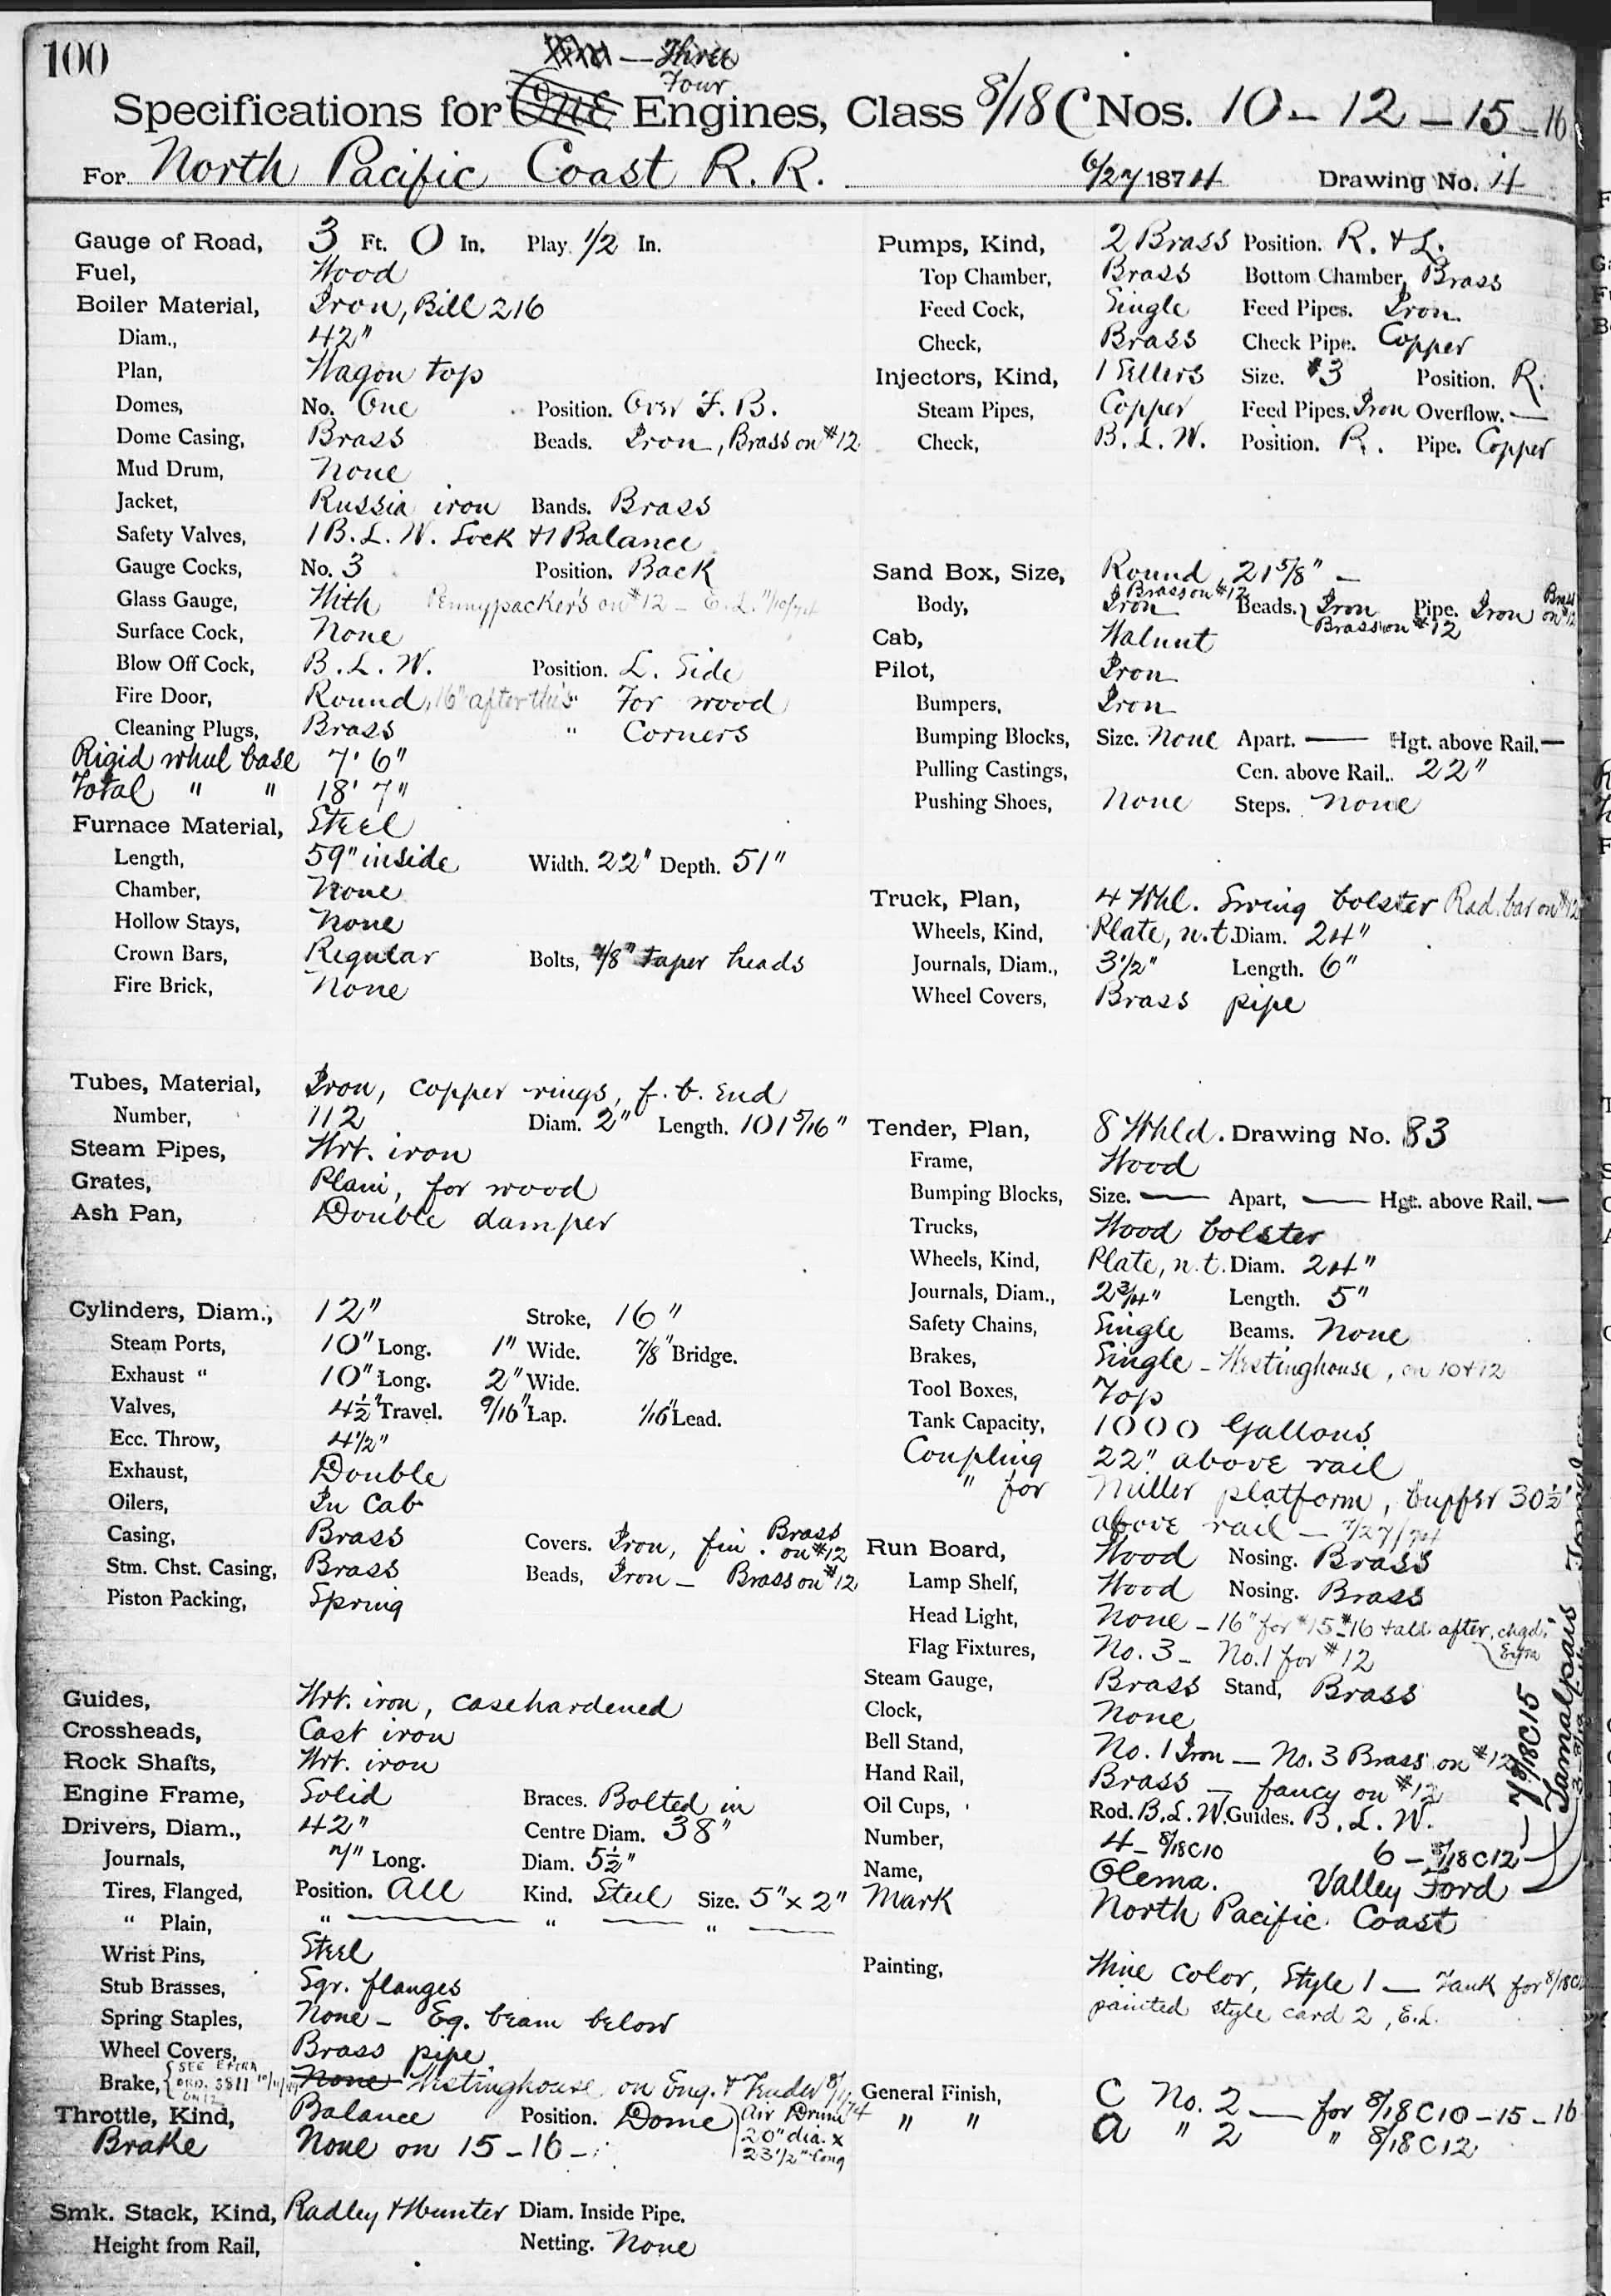 100
Three
Four
Specifications for One Engines, Class 8/18 C Nos. 10 – 12 – 15 – 16
For North Pacific Coast R. R. 6/27 1874 Drawing No. 4
Gauge of Road, 3 Ft. 0 In. Play. 1/2 In.
Fuel, Wood
Boiler Material, Iron, Bill 216
Diam., 42"
Plan, Wagon top
Domes, No. One Position. Over F. B.
Dome Casing, Brass Beads. Iron, Brass on #12
Mud Drum, None
Jacket, Russia iron Bands. Brass
Safety Valves, 1 B. L. W. Lock & 1 Balance
Gauge Cocks, No. 3 Position. Back
Glass Gauge, With Pennypacker's on #12 – E. L. 11/10/74
Surface Cock, None
Blow Off Cock, B. L. W. Position. L. Side
Fire Door, Round, 16" after this " For wood
Cleaning Plugs, Brass " Corners
Rigid wheel base 7' 6"
Total " " 18' 7"
Furnace Material, Steel
Length, 59" inside Width. 22" Depth. 51"
Chamber, None
Hollow Stays, None
Crown Bars, Regular Bolts, 7/8" taper heads
Fire Brick, None
Tubes, Material, Iron, copper rings, f. b. end
Number, 112 Diam. 2" Length. 101 5/16"
Steam Pipes, Wrt. iron
Grates, Plain, for wood
Ash Pan, Double damper
Cylinders, Diam., 12" Stroke, 16"
Steam Ports, 10" Long. 1" Wide. 7/8" Bridge.
Exhaust " 10" Long. 2" Wide.
Valves, 4 1/2" Travel. 9/16" Lap. 1/16" Lead.
Ecc. Throw, 4 1/2"
Exhaust, Double
Oilers, In Cab
Casing, Brass Covers. Iron, fin. Brass on #12
Stm. Chst. Casing, Brass Beads, Iron – Brass on #12
Piston Packing, Spring
Guides, Wrt. iron, casehardened
Crossheads, Cast iron
Rock Shafts, Wrt. iron
Engine Frame, Solid Braces. Bolted in
Drivers, Diam., 42" Centre Diam. 38"
Journals, 7" Long. Diam. 5 1/2"
Tires, Flanged, Position. All Kind. Steel Size. 5" x 2"
" Plain, " — " — " —
Wrist Pins, Steel
Stub Brasses, Sqr. flanges
Spring Staples, None – Eq. beam below
Wheel Covers, Brass pipe
Brake, { SEE EXTRA ORD. 3811 ON 12 None Westinghouse on Eng. & Tender
Throttle, Kind, Balance Position. Dome
Air Drum
20" dia. x
23 1/2" long
Brake None on 15 – 16 –
Smk. Stack, Kind, Radley & Hunter Diam. Inside Pipe.
Height from Rail, Netting. None
Pumps, Kind, 2 Brass Position. R. & L.
Top Chamber, Brass Bottom Chamber, Brass
Feed Cock, Single Feed Pipes. Iron
Check, Brass Check Pipe. Copper
Injectors, Kind, 1 Sellers Size. #3 Position. R.
Steam Pipes, Copper Feed Pipes. Iron Overflow. —
Check, B. L. W. Position. R. Pipe. Copper
Sand Box, Size, Round 21 5/8" –
Brass on #12
Body, Iron Beads. Iron Pipe. Iron Brass on #12
Brass on #12
Cab, Walnut
Pilot, Iron
Bumpers, Iron
Bumping Blocks, Size. None Apart. — Hgt. above Rail. —
Pulling Castings, Cen. above Rail. 22"
Pushing Shoes, None Steps. None
Truck, Plan, 4 Whl. Swing bolster Rad. bar on #12
Wheels, Kind, Plate, n. t. Diam. 24"
Journals, Diam., 3 1/2" Length. 6"
Wheel Covers, Brass pipe
Tender, Plan, 8 Whld. Drawing No. 83
Frame, Wood
Bumping Blocks, Size. — Apart, — Hgt. above Rail. —
Trucks, Wood bolster
Wheels, Kind, Plate, n. t. Diam. 24"
Journals, Diam., 2 3/4" Length. 5"
Safety Chains, Single Beams. None
Brakes, Single – Westinghouse, on 10 & 12
Tool Boxes, Top
Tank Capacity, 1000 Gallons
Coupling 22" above rail
" for Miller platform, buffer 30 1/2"
above rail – 7/27/74
Run Board, Wood Nosing. Brass
Lamp Shelf, Wood Nosing. Brass
Head Light, None – 16" for #15 – #16 & all after, chgd. Extra
Flag Fixtures, No. 3 – No. 1 for #12
Steam Gauge, Brass Stand, Brass
Clock, None
Bell Stand, No. 1 Iron – No. 3 Brass on #12
Hand Rail, Brass – fancy on #12
Oil Cups, Rod. B. L. W. Guides. B. L. W.
Number, 4 – 8/18C10 6 – 8/18C12
Name, Olema. Valley Ford
Mark North Pacific Coast
7 – 8/18C15
Tamalpais
Painting, Wine color, Style 1 – Tank for 8/18C12
painted style card 2, E. L.
General Finish, C No. 2 — for 8/18C10 – 15 – 16
" " A " 2 " 8/18C12